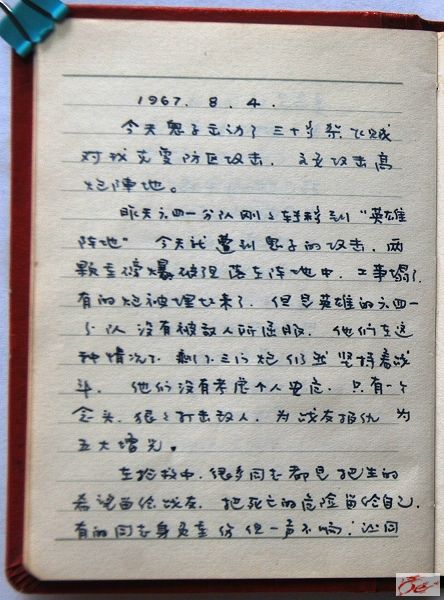 1967. 8. 4.
今天鬼子出动了三十多架飞贼
对我克夫防区攻击，主要攻击高
炮陣地。
昨天六四一分队刚刚转移到“英雄
阵地”今天就遭到鬼子的攻击，两
颗重磅爆破弹落在阵地中，工事塌了
有的炮被埋起来了，但是英雄的六四一
分队没有被敌人所屈服，他们在这
种情况下剩下三门炮仍然坚持着战
斗，他们没有考虑个人安危，只有一个
念头，狠狠打击敌人，为战友报仇为
五大增光。
在抢救中，很多同志都是把生的
希望留给战友，把死亡的危险留给自己，
有的同志身负重伤但一声不响；还同